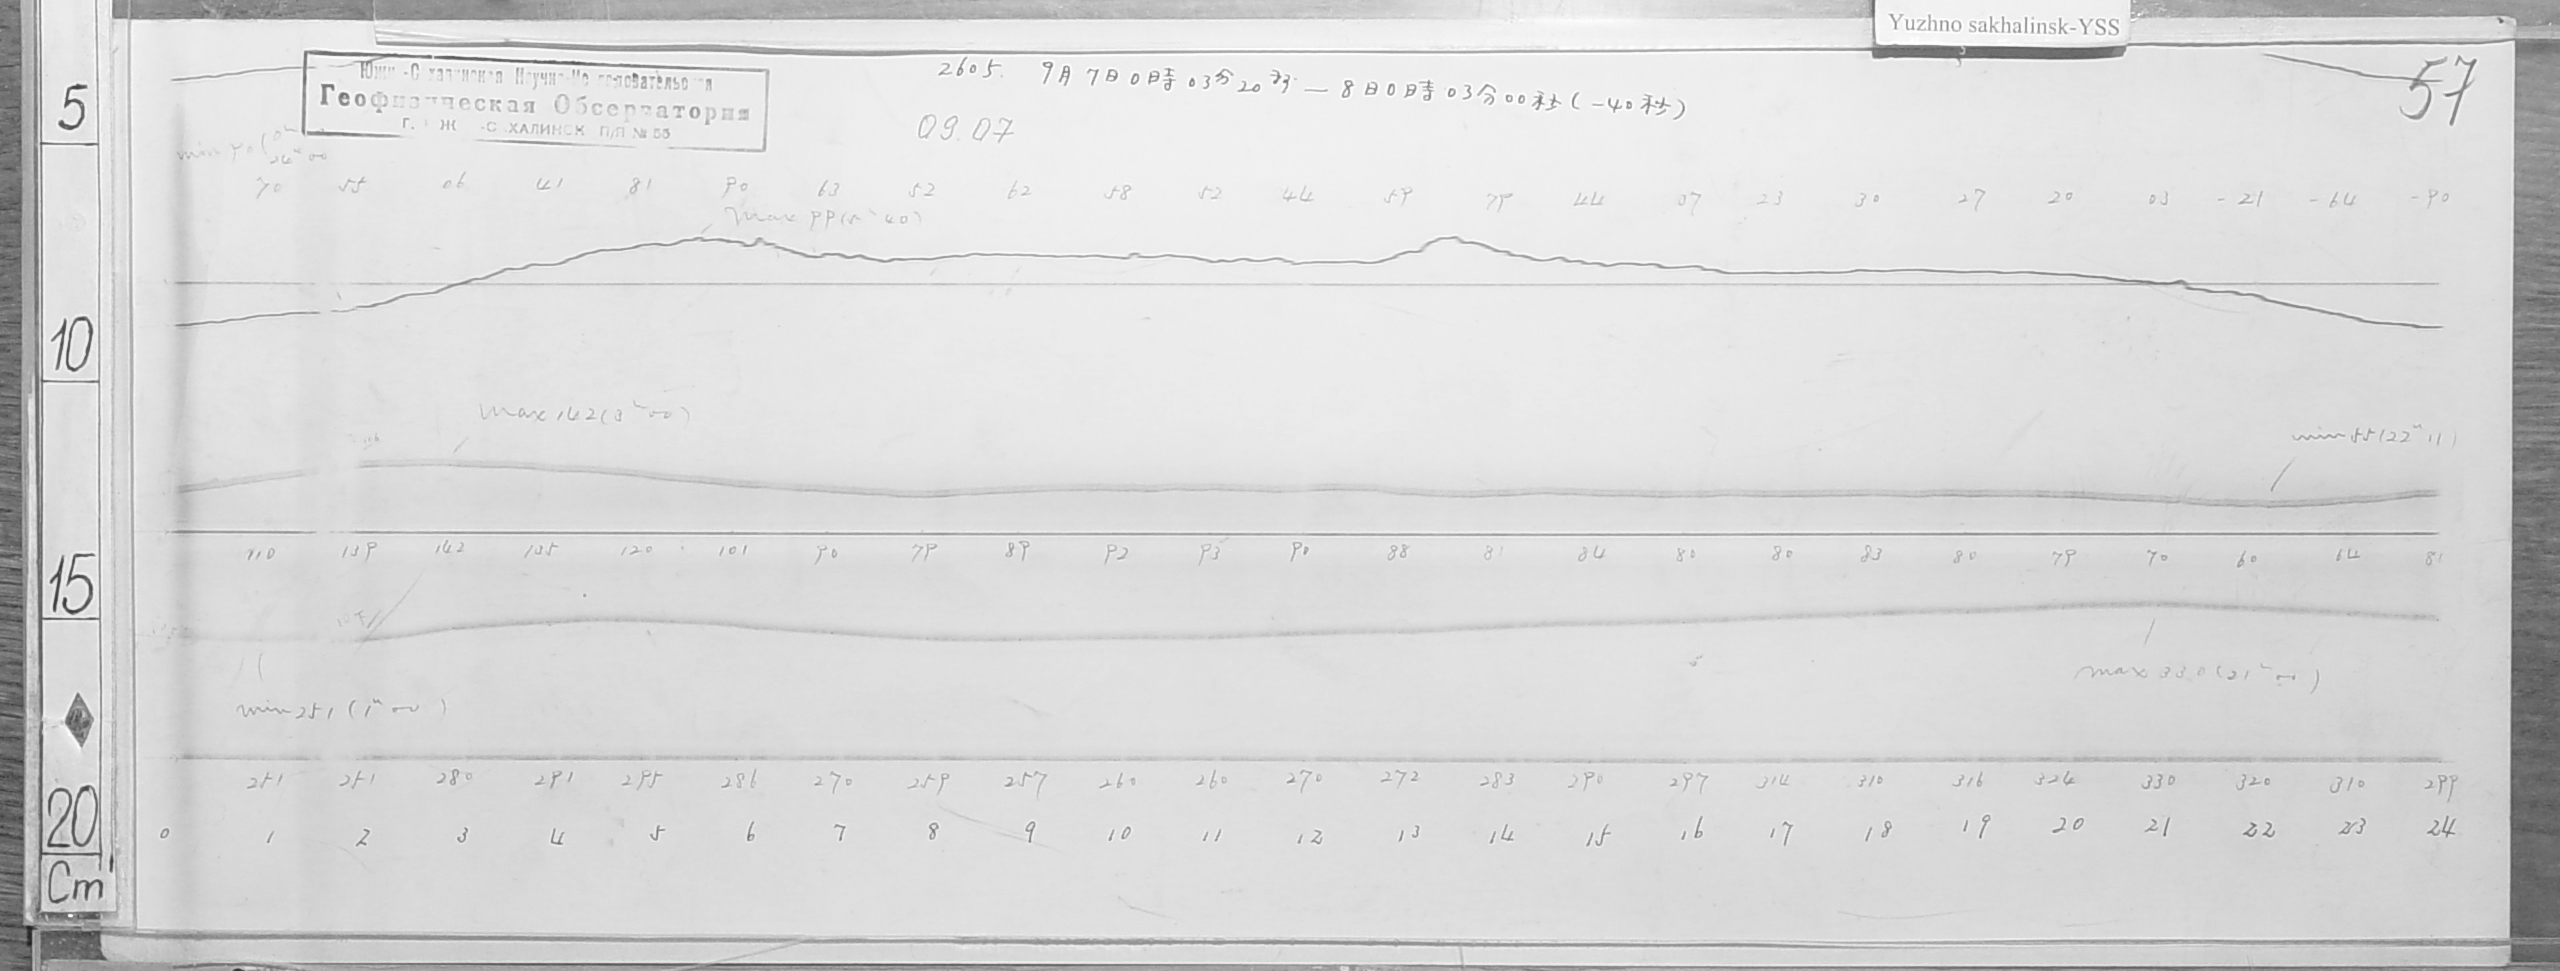 Yuzhno sakhalinsk-YSS
57
2605. 9月7日0時03分20秒—8日0時03分00秒(-40秒)
Геофизическая Обсерватория
П/Я № 55
09.07
70 55 06 41 81 90 63 52 62 58 52 44 59 79 44 07 23 30 27 20 03 -21 -64 -90
max 99(5h40)
max 142(3h00)
min 55(22h11)
110 139 142 135 120 101 90 79 89 92 93 90 88 81 84 80 80 83 80 79 70 60 64 81
max 330(21h00)
min 251(1h00)
251 251 280 291 295 286 270 259 257 260 260 270 272 283 290 297 314 310 316 324 330 320 310 299
0 1 2 3 4 5 6 7 8 9 10 11 12 13 14 15 16 17 18 19 20 21 22 23 24
5
10
15
20
Cm